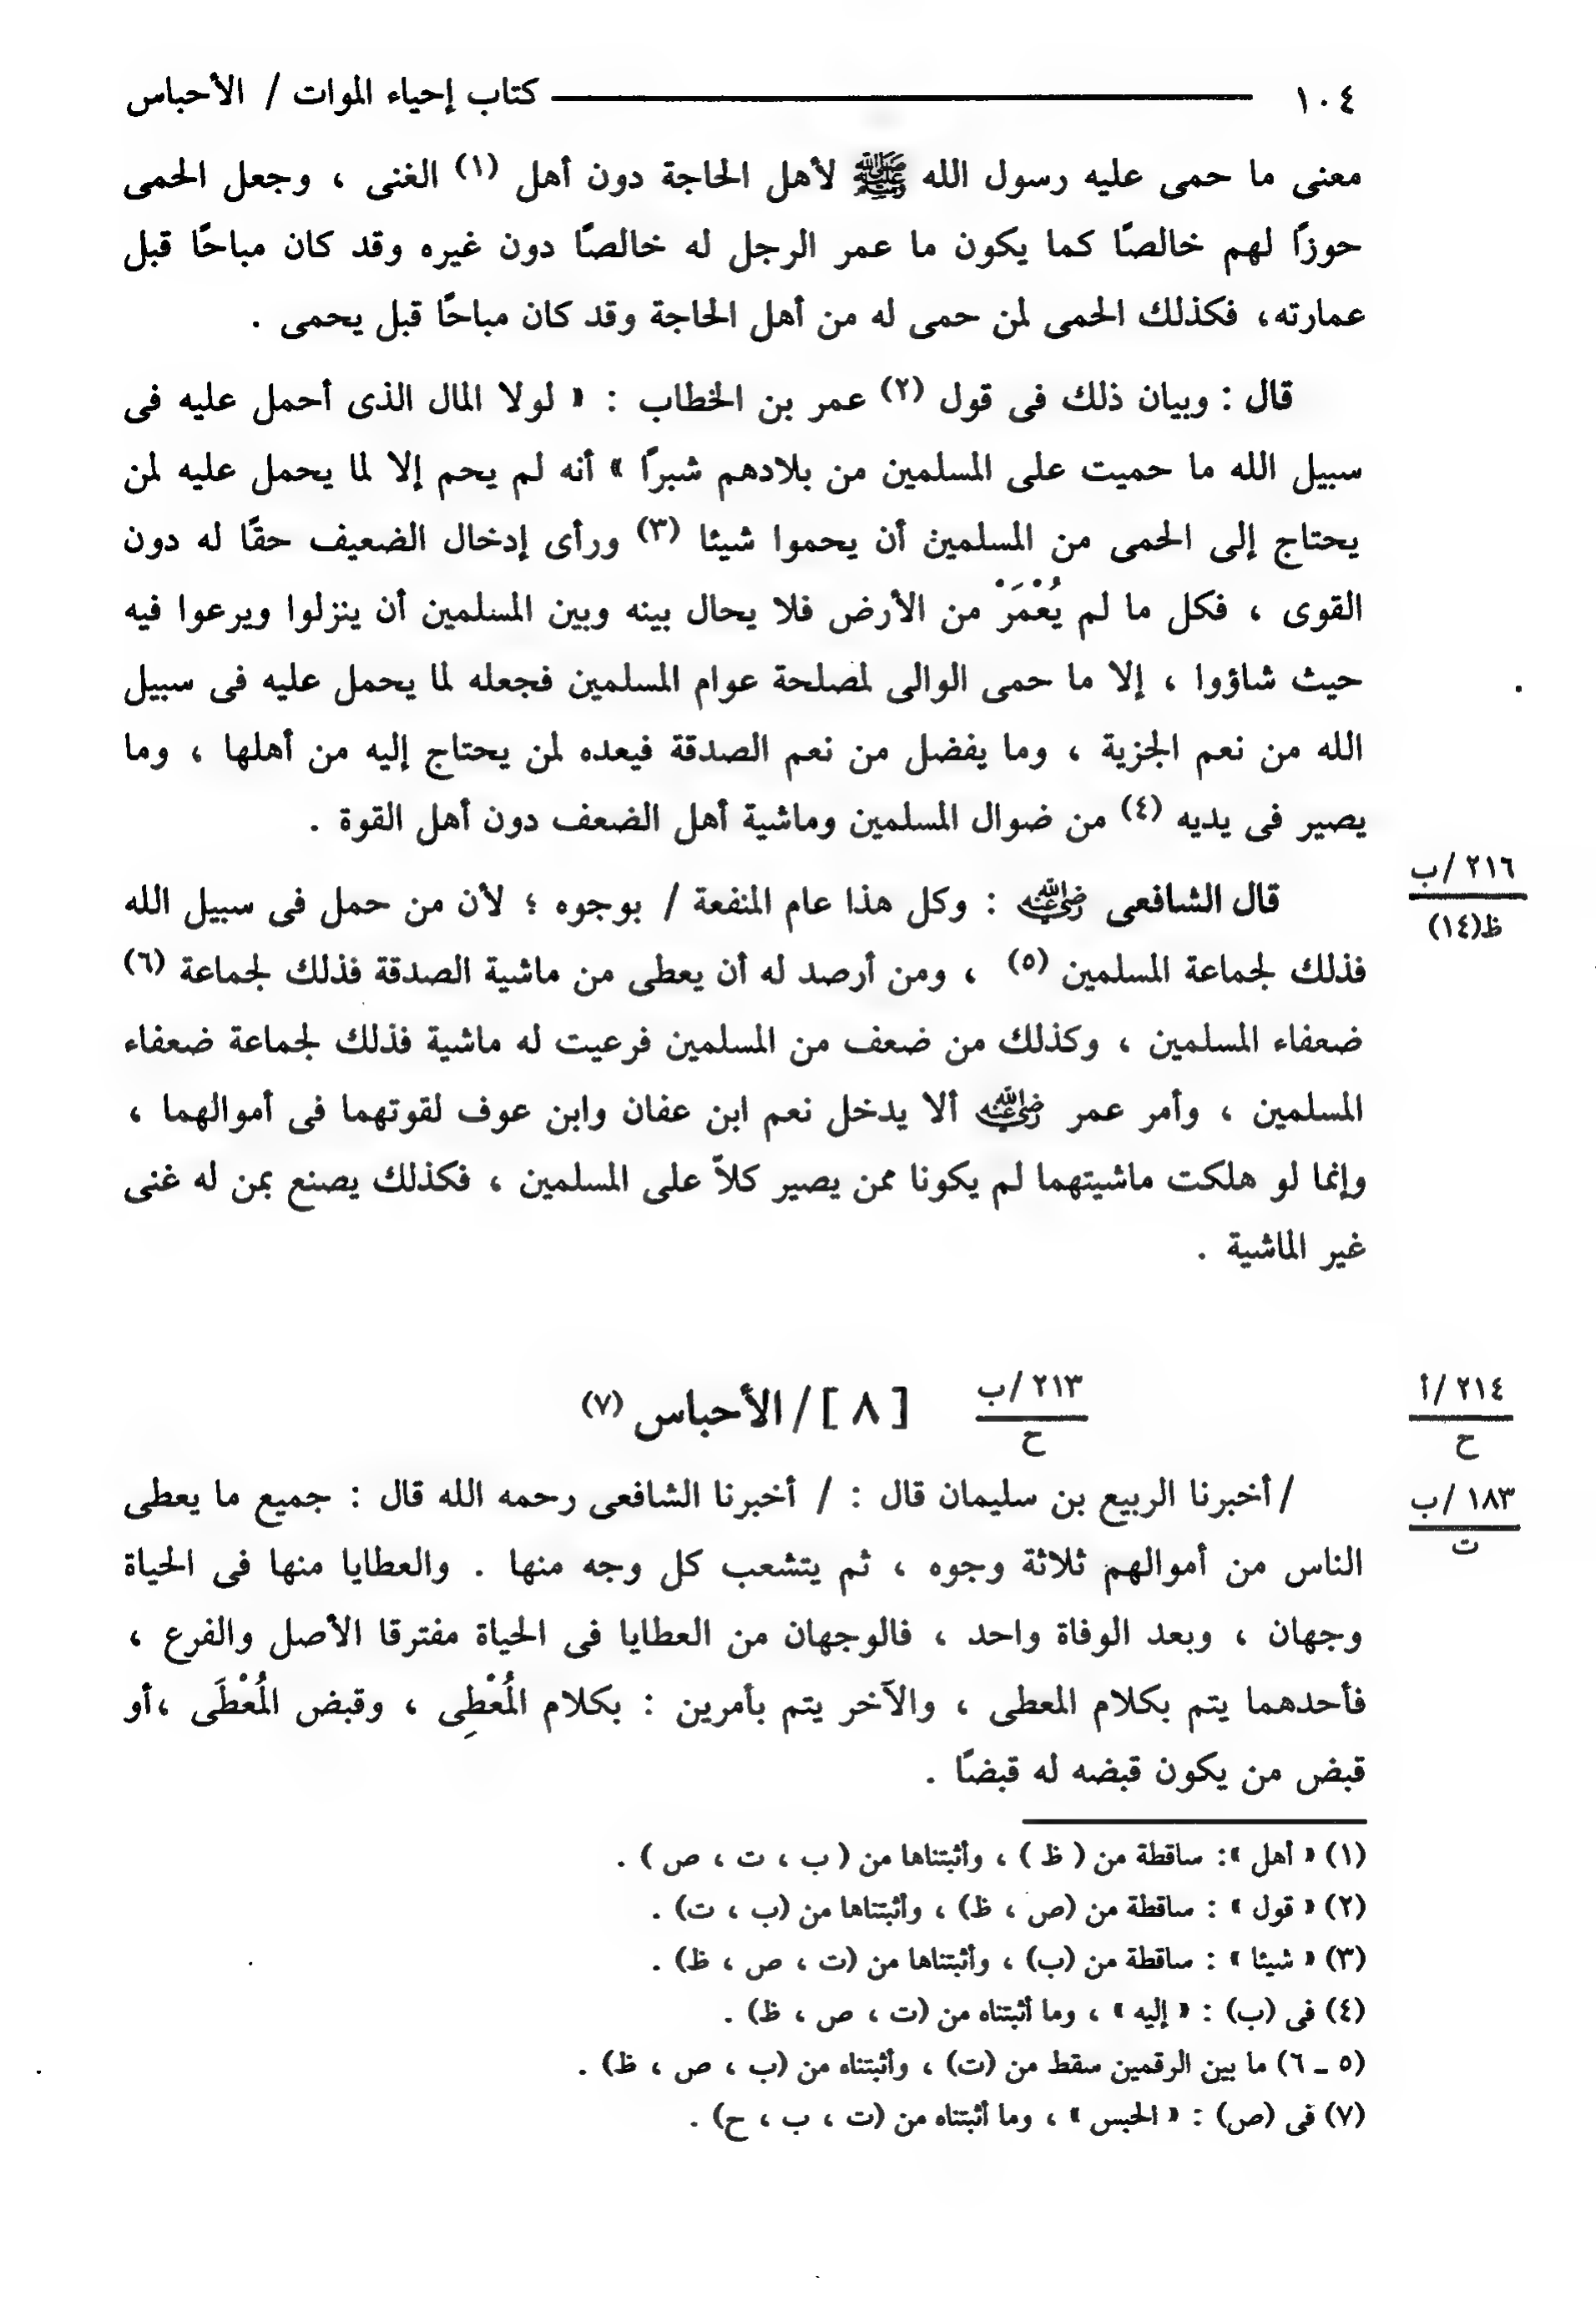 ١٠٤ ـــــــ كتاب إحياء الموات / الأحباس
معنى ما حمى عليه رسول الله ﷺ لأهل الحاجة دون أهل (١) الغنى ، وجعل الحمى
حوزًا لهم خالصًا كما يكون ما عمر الرجل له خالصًا دون غيره وقد كان مباحًا قبل
عمارته، فكذلك الحمى لمن حمى له من أهل الحاجة وقد كان مباحًا قبل يحمى .
قال : وبيان ذلك فى قول (٢) عمر بن الخطاب : « لولا المال الذى أحمل عليه فى
سبيل الله ما حميت على المسلمين من بلادهم شبرًا » أنه لم يحم إلا لما يحمل عليه لمن
يحتاج إلى الحمى من المسلمين أن يحموا شيئا (٣) ورأى إدخال الضعيف حقًا له دون
القوى ، فكل ما لم يُعْمَرْ من الأرض فلا يحال بينه وبين المسلمين أن ينزلوا ويرعوا فيه
حيث شاؤوا ، إلا ما حمى الوالى لمصلحة عوام المسلمين فجعله لما يحمل عليه فى سبيل
الله من نعم الجزية ، وما يفضل من نعم الصدقة فيعده لمن يحتاج إليه من أهلها ، وما
يصير فى يديه (٤) من ضوال المسلمين وماشية أهل الضعف دون أهل القوة .
٢١٦ /ب
ظ(١٤)
قال الشافعى رضي الله عنه : وكل هذا عام المنفعة / بوجوه ؛ لأن من حمل فى سبيل الله
فذلك لجماعة المسلمين (٥) ، ومن أرصد له أن يعطى من ماشية الصدقة فذلك لجماعة (٦)
ضعفاء المسلمين ، وكذلك من ضعف من المسلمين فرعيت له ماشية فذلك لجماعة ضعفاء
المسلمين ، وأمر عمر رضي الله عنه ألا يدخل نعم ابن عفان وابن عوف لقوتهما فى أموالهما ،
وإنما لو هلكت ماشيتهما لم يكونا ممن يصير كلاّ على المسلمين ، فكذلك يصنع بمن له غنى
غير الماشية .
٢١٤ /أ
ح
٢١٣ /ب
ح
[ ٨ ] / الأحباس (٧)
١٨٣ /ب
ت
/ أخبرنا الربيع بن سليمان قال : / أخبرنا الشافعى رحمه الله قال : جميع ما يعطى
الناس من أموالهم ثلاثة وجوه ، ثم يتشعب كل وجه منها . والعطايا منها فى الحياة
وجهان ، وبعد الوفاة واحد ، فالوجهان من العطايا فى الحياة مفترقا الأصل والفرع ،
فأحدهما يتم بكلام المعطى ، والآخر يتم بأمرين : بكلام المُعْطِى ، وقبض المُعْطَى ،أو
قبض من يكون قبضه له قبضًا .
(١) « أهل »: ساقطة من ( ظ ) ، وأثبتناها من ( ب ، ت ، ص ) .
(٢) « قول » : ساقطة من (ص ، ظ) ، وأثبتناها من (ب ، ت) .
(٣) « شيئا » : ساقطة من (ب) ، وأثبتناها من (ت ، ص ، ظ) .
(٤) فى (ب) : « إليه » ، وما أثبتناه من (ت ، ص ، ظ) .
(٥ ـ ٦) ما بين الرقمين سقط من (ت) ، وأثبتناه من (ب ، ص ، ظ) .
(٧) فى (ص) : « الحبس » ، وما أثبتناه من (ت ، ب ، ح) .